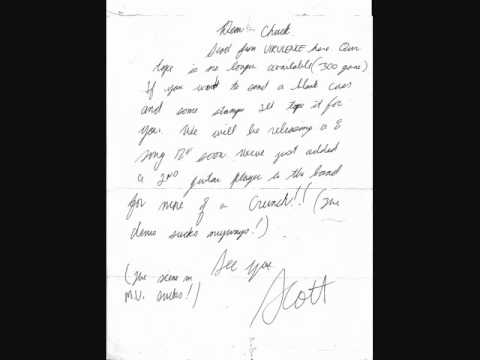 Dear Chuck
from VIRULENCE here. Our
tape is no longer available (300 gone)
If you want to send a blank cass
and some stamps I'll tape it for
you. We will be releasing a 8
song 12" soon. We've just added
a 2ND guitar player in the band
for more of a Crunch!! (The
demo sucks anyways!)
See you
(The scene in
M.V. sucks!)
Scott